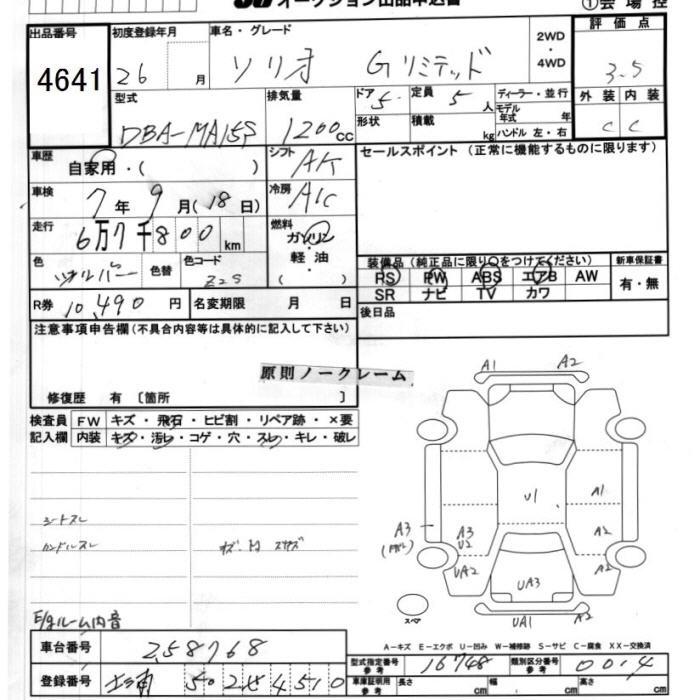 オークション出品申込書 ①会場控
出品番号 4641
初度登録年月 26 月
車名・グレード ソリオ Gリミテッド
2WD・4WD
評価点 3.5
型式 DBA-MA15S
排気量 1200cc
ドア 5 定員 5 人
形状 積載 kg
ディーラー・並行
モデル年式 年
ハンドル 左・右
外装 内装
C C
車歴 自家用・( )
シフト AK
セールスポイント (正常に機能するものに限ります)
車検 7年 9月(18日)
冷房 A/C
走行 6万7千800 km
燃料 ガソリン・軽油・( )
色 シルバー 色替 色コード Z2S
装備品(純正品に限り○をつけてください) 新車保証書
PS PW ABS エアB AW 有・無
SR ナビ TV カワ
R券 10,490円 名変期限 月 日
後日品
注意事項申告欄(不具合内容等は具体的に記入して下さい)
原則ノークレーム
修復歴 有 〔箇所 〕
検査員記入欄 FW キズ・飛石・ヒビ割・リペア跡・×要
内装 キズ・汚レ・コゲ・穴・スレ・キレ・破レ
シートスレ
ハンドルスレ
E/gルーム内音
A1 A2
U1 A1
A3 A3 U2 A2
UA2 UA3 A2
スペア UA1 A2
A-キズ E-エクボ U-凹み W-補修跡 S-サビ C-腐食 XX-交換済
車台番号 258768
型式指定番号 参考 16748 類別区分番号 参考 0014
登録番号 50 4510
車庫証明用 参考 長さ cm 幅 cm 高さ cm